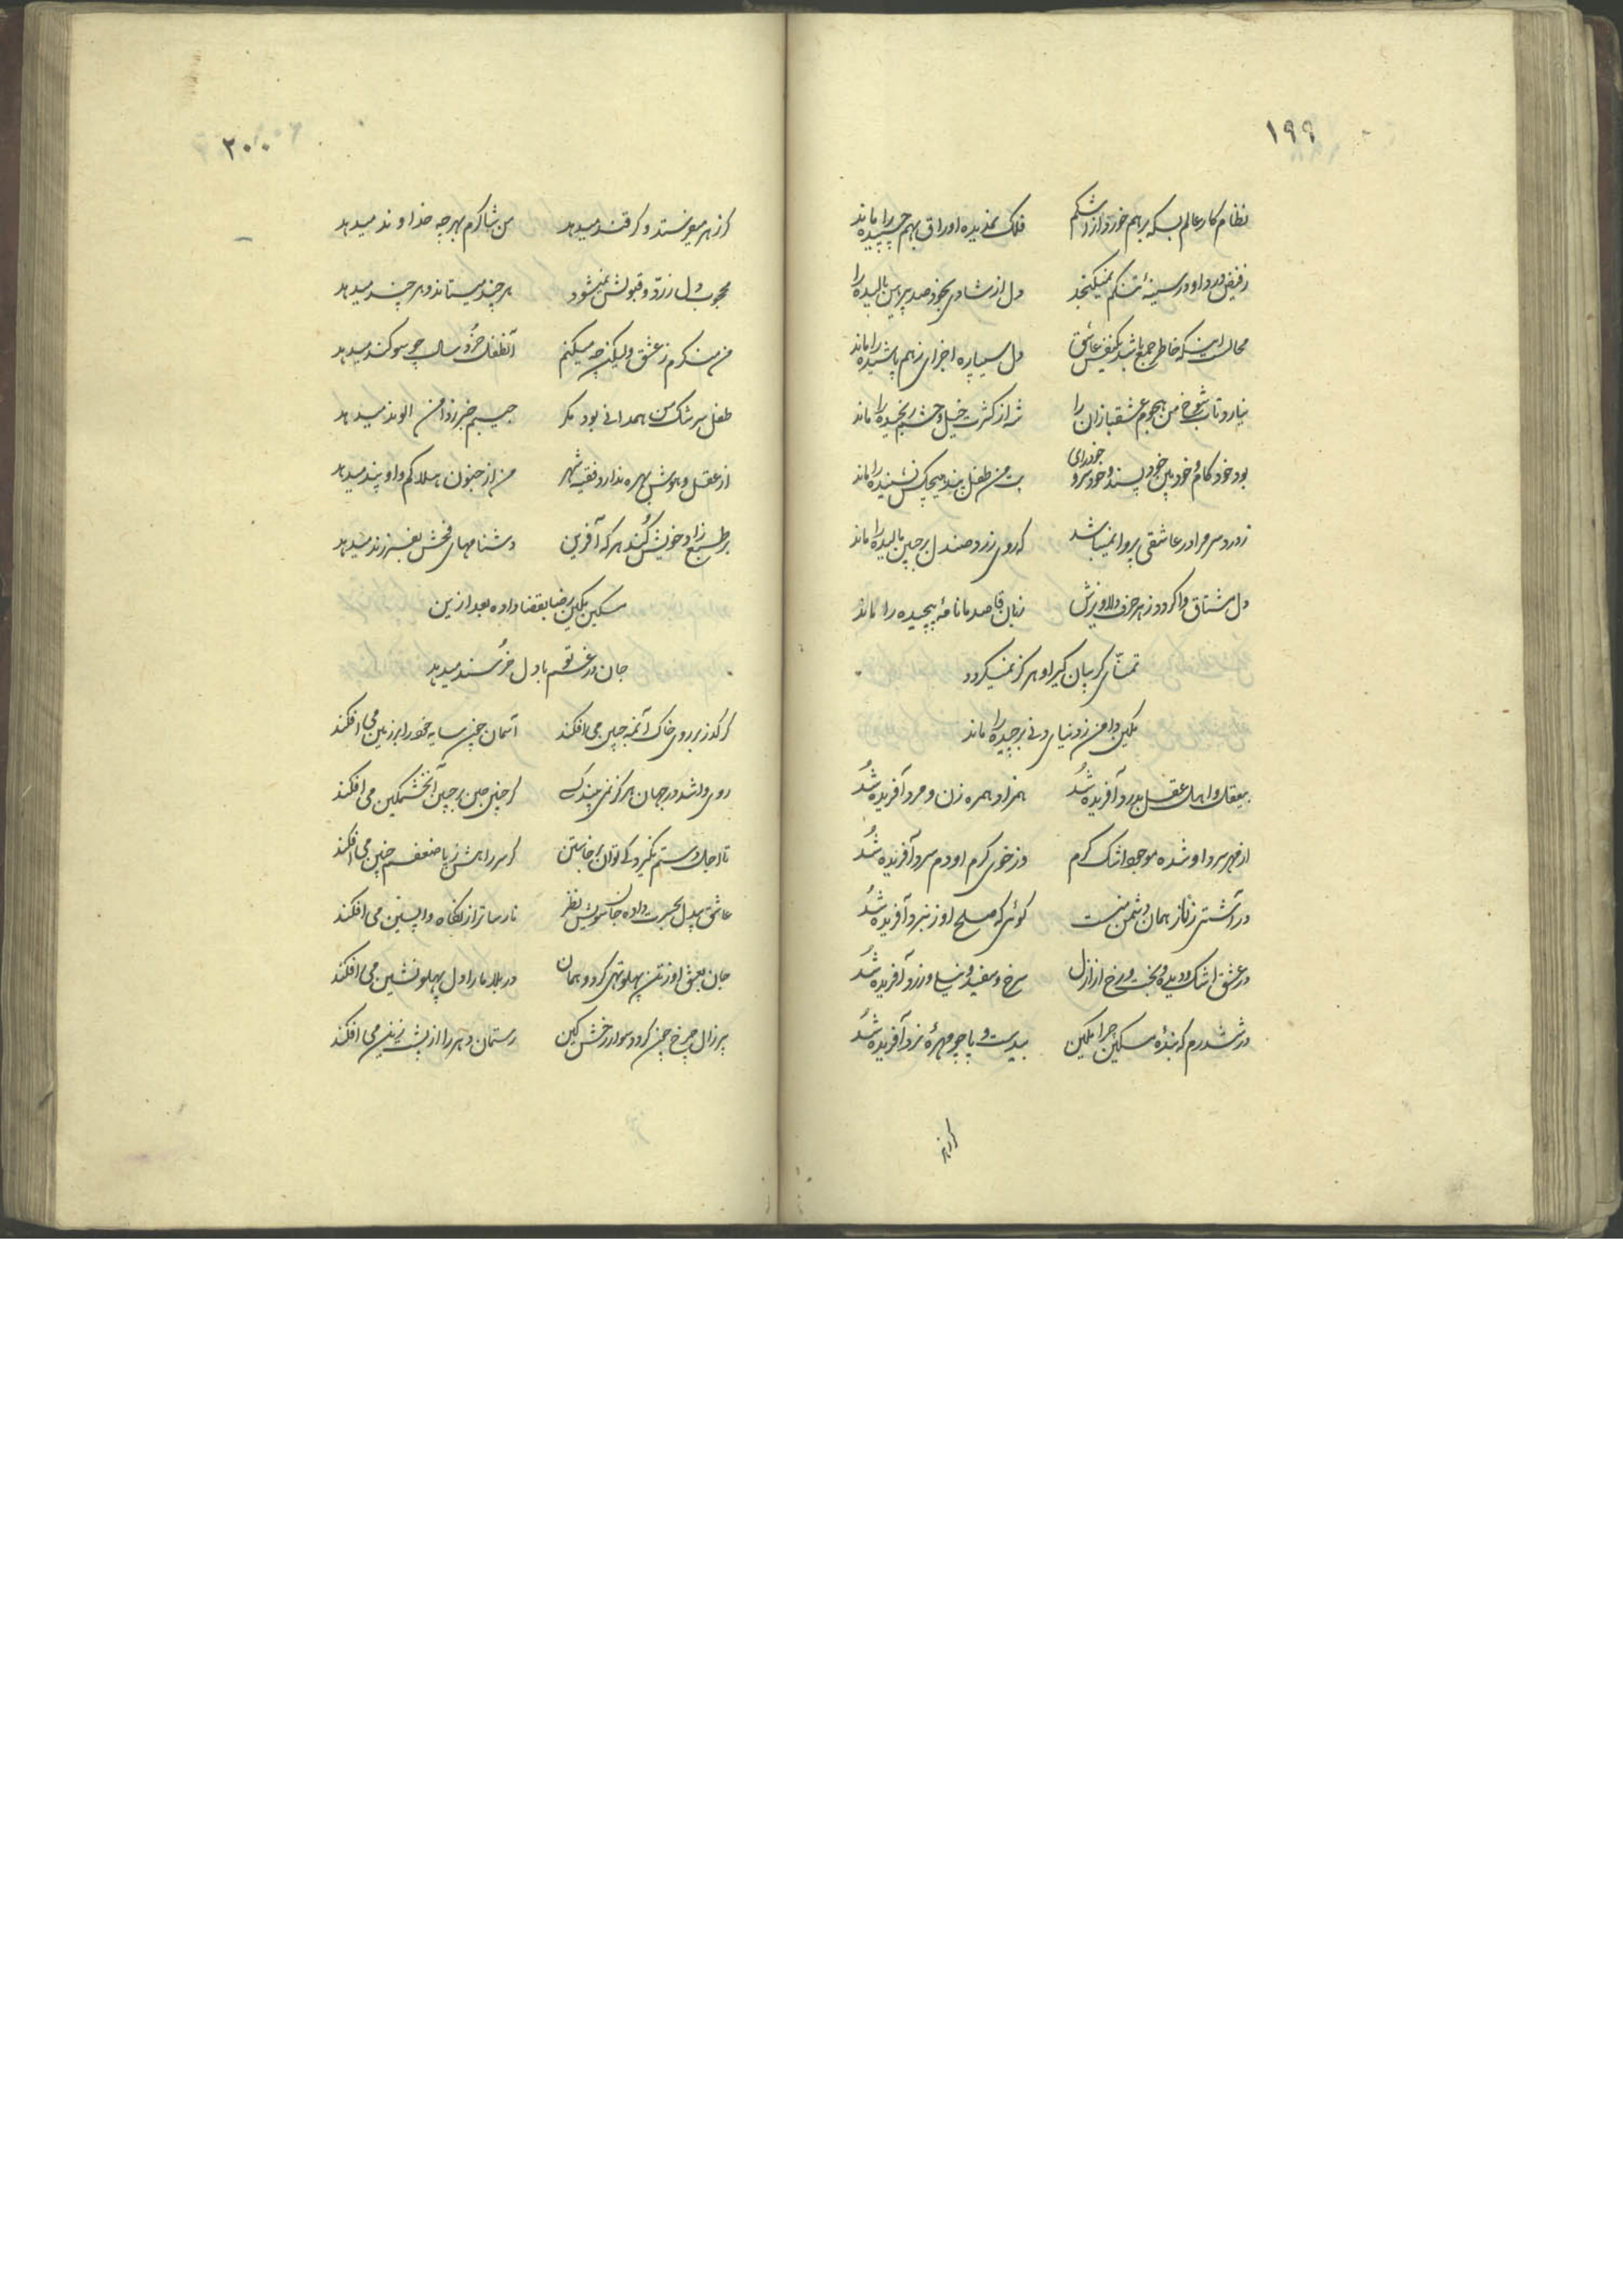 ۱۹۹
نظام کار عالم بسکه برهم خورد از اشکم فلک نم دیده اوراق بهم چسپیده را ماند
ز فیض درد او در سینهٔ تنگم نمیگنجد دل از شادی بخود صد پیرهن بالیده را
محالست اینکه خاطر جمع باشد یکنفس عاشق دل سیپاره اجزای ز هم پاشیده را ماند
نیارد تاب شوخ من هجوم عشقبازان را شه از کثرت خیل و حشم رنجیده را ماند
بود خود کام و خود بین خود پسند و خود سر و خودرای بت من طفل پند هیچکس نشنیده را ماند
ز درد سر مرا در عاشقی پروا نمیباشد که روی زرد صندل بر جبین مالیده را ماند
دل مشتاق وا گردد ز هر حرف دلاویزش زبان قاصد ما نامهٔ پیچیده را ماند
تمنای گریبان گیر او هرگز نمیگردد
تمکین دامن ز دنیای دنی برچیده را ماند
بیعقل و اهل عقل بدرد آفریده شد همزاد و همره زن و مرد آفریده شد
از مهر سرد او شده موجود اشک گرم وز خوی گرم او دم سرد آفریده شد
در آشتی ز ناز همان دشمن منست گوئی که صلح او ز نبرد آفریده شد
در عشق اشک و دیده و بخت و رخ از ازل سرخ و سفید و سیاه و زرد آفریده شد
در ششدرم که بندهٔ مسکین چرا تمکین بیدست و پا چو مهرهٔ نرد آفریده شد
گر زهر
۲۰۰
گر زهر میفرستد و گر قند میدهد من شاکرم بهرچه خداوند میدهد
محجوب دل ز رد و قبولش نمیشود هر چند میستاند و هر چند میدهد
من منکرم ز عشق ولیکن چه میکنم آنطفل خرد سال چو سوگند میدهد
طفل سرشک من همدانی بود مگر جیبم خبر ز دامن الوند میدهد
از عقل و هوش بهره ندارد فقیه شهر من از جنون هلاکم و او پند میدهد
بر طبع زاد خویش کند هر که آفرین دشنامهای فحش بفرزند میدهد
مسکین تمکین رضا بقضا داده بعد ازین
جان در غم تو با دل خرسند میدهد
گر گذر بر روی خاک آنمه جبین می افکند آسمان چون سایه خود را بر زمین می افکند
روی وا شد در جهان هرگز نمی بیند کسی گر چنین چین بر جبین آنخشمگین می افکند
تا اجل دستم نگیرد کی توان برخاستن گر سر راهش ز پا ضعفم چنین می افکند
عاشق بیدل بحسرت داده جان سویش نظر نارساتر از نگاه واپسین می افکند
جان بعشق او ز تن پهلو تهی کرد و همان در بلا ما را دل پهلو نشین می افکند
پیر زال چرخ چون گردد سوار رخش کین رستمان دهر را از پشت زین می افکند